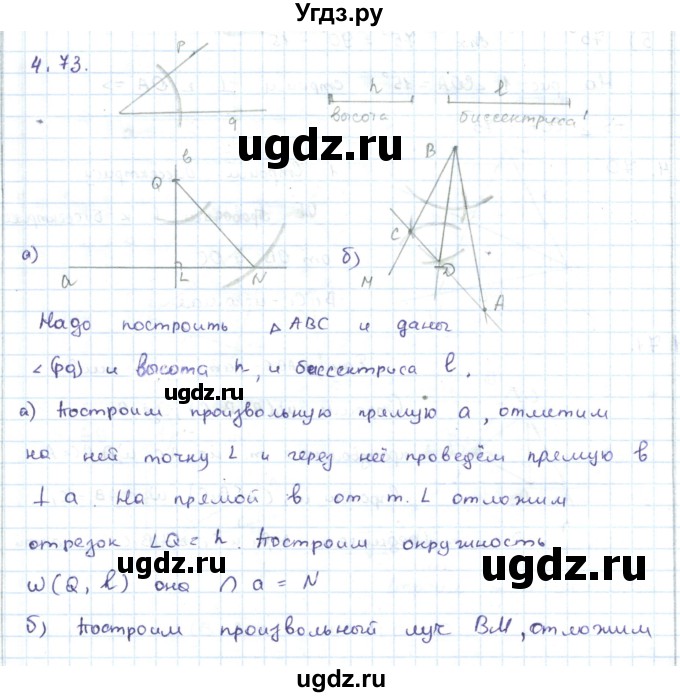 Угдз.ру
4.73.
P
q
h
высота
l
биссектриса
ugdz.ru
а)
Q
в
a
L
N
б)
B
C
M
D
A
Надо построить △ABC и даны
∠(pq) и высота h, и биссектриса l.
ugdz.ru
а) Построим произвольную прямую a, отметим
на ней точку L и через неё проведём прямую в
⊥ a. На прямой в от т. L отложим
отрезок LQ = h. Построим окружность
ugdz.ru
ω(Q, l) она ∩ a = N
б) Построим произвольный луч BM, отложим
ugdz.ru